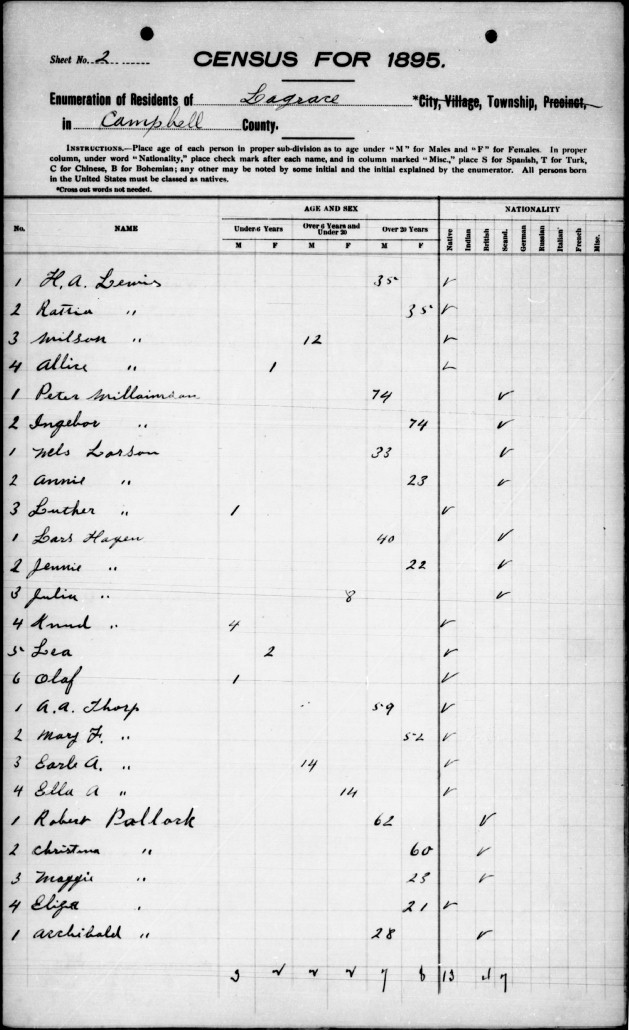 Sheet No. 2
CENSUS FOR 1895.
Enumeration of Residents of Lagrace *City, Village, Township, Precinct,
in Campbell County.
INSTRUCTIONS.—Place age of each person in proper sub-division as to age under "M" for Males and "F" for Females. In proper
column, under word "Nationality," place check mark after each name, and in column marked "Misc.," place S for Spanish, T for Turk,
C for Chinese, B for Bohemian; any other may be noted by some initial and the initial explained by the enumerator. All persons born
in the United States must be classed as natives.
*Cross out words not needed.
No. NAME AGE AND SEX NATIONALITY
Under 6 Years Over 6 Years and Under 20 Over 20 Years
M F M F M F Native Indian British Scand. German Russian Italian French Misc.
1 H. A. Lewis 35 ✓
2 Rattia " 35 ✓
3 Wilson " 12 ✓
4 Allise " 1 ✓
1 Peter 74 ✓
2 Ingebor " 74 ✓
1 Nels Larson 33 ✓
2 Annie " 23 ✓
3 Luther " 1 ✓
1 Lars Hagen 40 ✓
2 Jennie " 22 ✓
3 Julia " 8 ✓
4 Knud " 4 ✓
5 Lea 2 ✓
6 Olaf 1 ✓
1 A. A. Thorp 59 ✓
2 Mary F. " 52 ✓
3 Earle A. " 14 ✓
4 Ella A " 14 ✓
1 Robert Pollock 62 ✓
2 Christina " 60 ✓
3 Maggie " 23 ✓
4 Eliza " 21 ✓
1 Archibald " 28 ✓
3 2 2 2 7 8 13 4 7